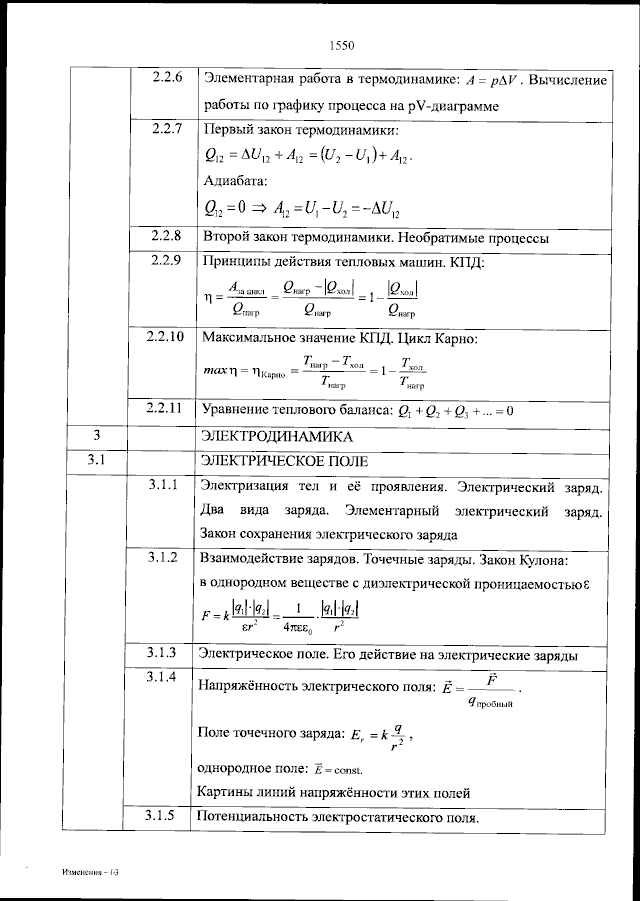 1550
2.2.6 Элементарная работа в термодинамике: A = pΔV. Вычисление
работы по графику процесса на pV-диаграмме
2.2.7 Первый закон термодинамики:
Q₁₂ = ΔU₁₂ + A₁₂ = (U₂ − U₁) + A₁₂.
Адиабата:
Q₁₂ = 0 ⇒ A₁₂ = U₁ − U₂ = −ΔU₁₂
2.2.8 Второй закон термодинамики. Необратимые процессы
2.2.9 Принципы действия тепловых машин. КПД:
η = A за цикл / Q нагр = (Q нагр − |Q хол|) / Q нагр = 1 − |Q хол| / Q нагр
2.2.10 Максимальное значение КПД. Цикл Карно:
max η = η Карно = (T нагр − T хол) / T нагр = 1 − T хол / T нагр
2.2.11 Уравнение теплового баланса: Q₁ + Q₂ + Q₃ + ... = 0
3 ЭЛЕКТРОДИНАМИКА
3.1 ЭЛЕКТРИЧЕСКОЕ ПОЛЕ
3.1.1 Электризация тел и её проявления. Электрический заряд.
Два вида заряда. Элементарный электрический заряд.
Закон сохранения электрического заряда
3.1.2 Взаимодействие зарядов. Точечные заряды. Закон Кулона:
в однородном веществе с диэлектрической проницаемостью ε
F = k |q₁|·|q₂| / εr² = 1 / 4πεε₀ · |q₁|·|q₂| / r²
3.1.3 Электрическое поле. Его действие на электрические заряды
3.1.4 Напряжённость электрического поля: E⃗ = F⃗ / q пробный.
Поле точечного заряда: Eᵣ = k q / r²,
однородное поле: E⃗ = const.
Картины линий напряжённости этих полей
3.1.5 Потенциальность электростатического поля.
Изменения - 03